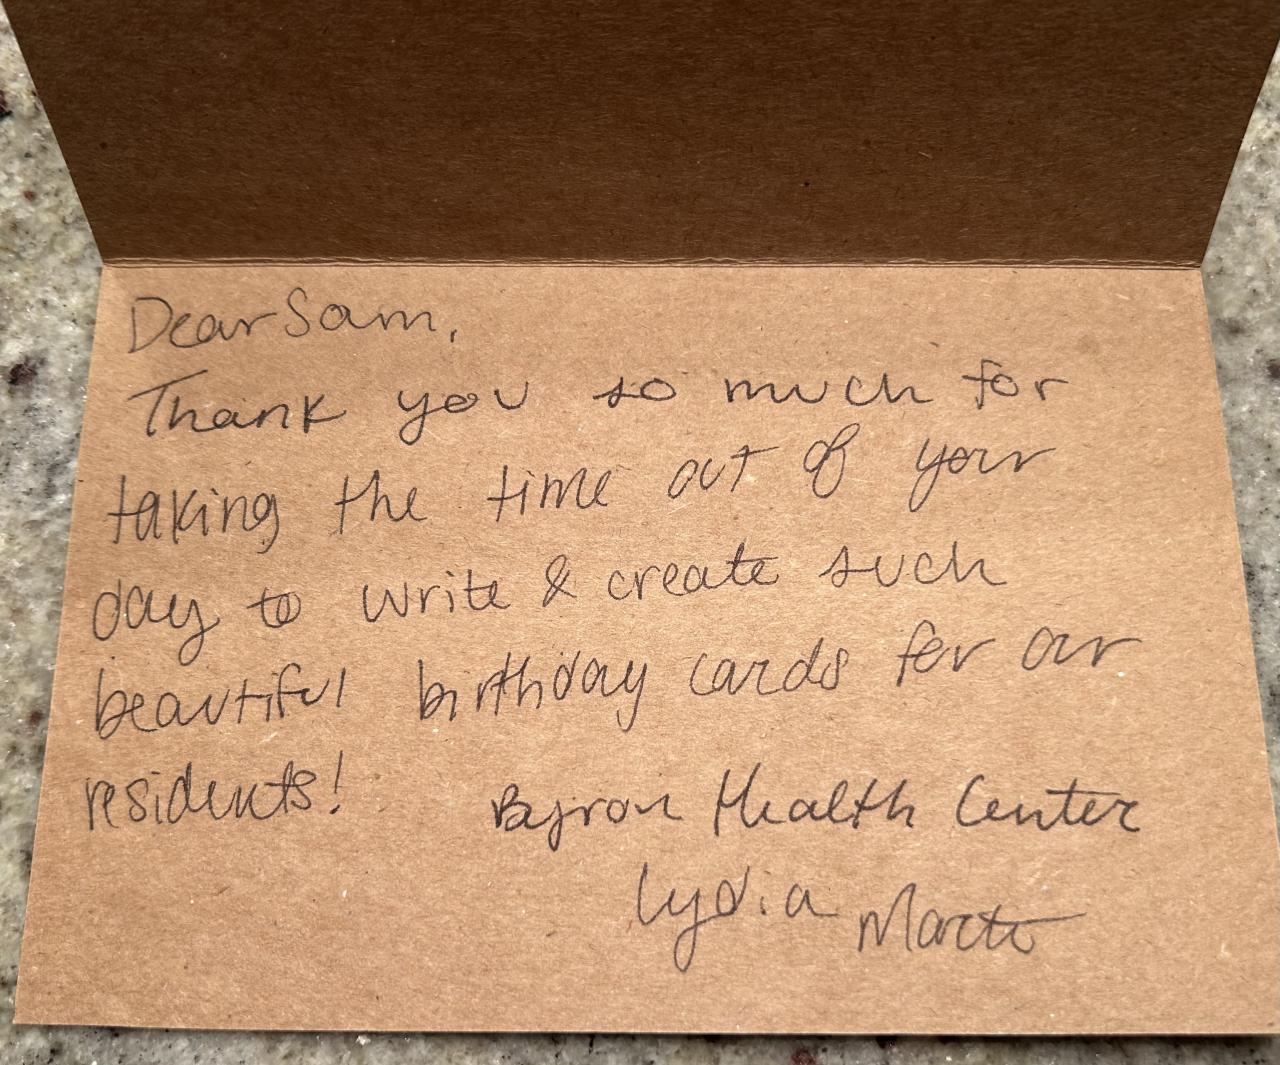 Dear Sam,
Thank you so much for
taking the time out of your
day to write & create such
beautiful birthday cards for our
residents!
Byron Health Center
Lydia